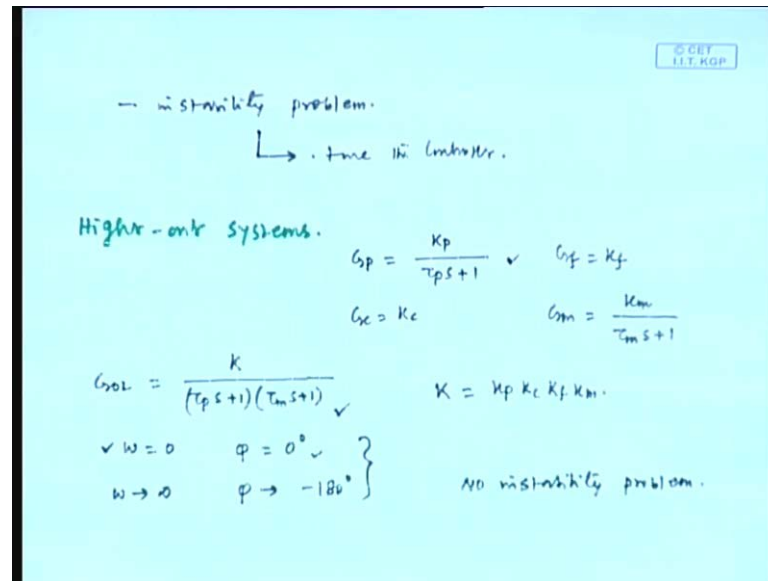 © CET
I.I.T. KGP
— instability problem.
↳ . tune the controller.
Higher-order systems.
Gp = Kp / (τp s + 1) ✓ Gf = Kf
Gc = Kc Gm = Km / (τm s + 1)
GOL = K / ((τp s + 1)(τm s + 1)) ✓ K = Kp Kc Kf Km.
✓ w = 0 φ = 0° ✓
w → ∞ φ → -180° } No instability problem.